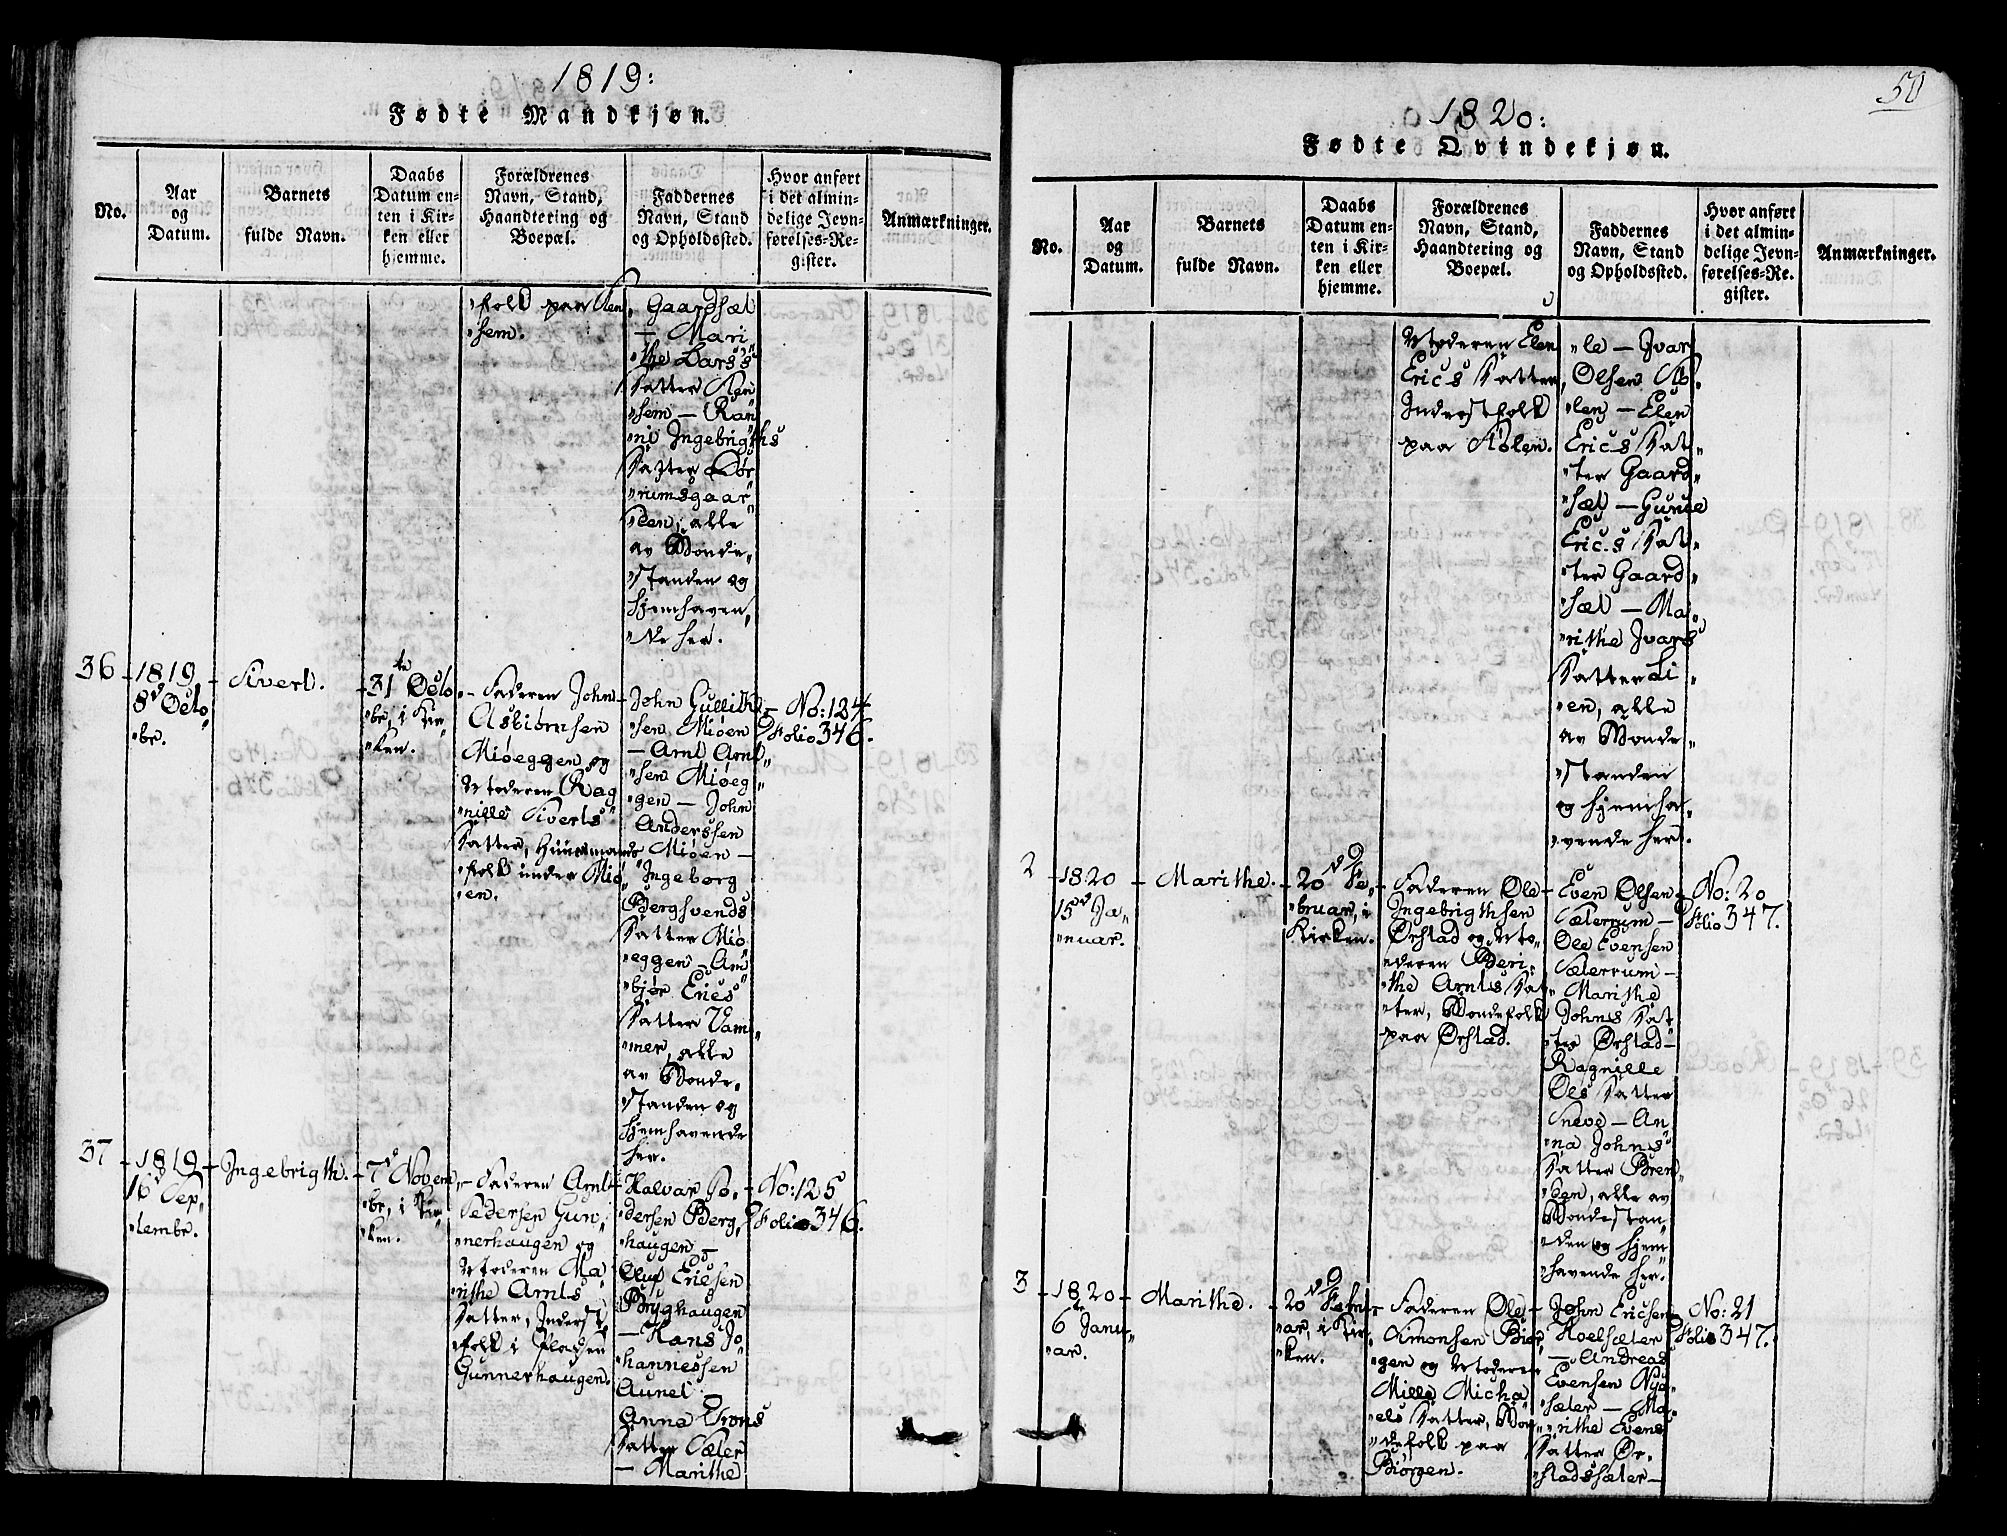 1819:
Fødte Mandkjøn.
No.
Aar
og
Datum.
Barnets
fulde Navn.
Daabs
Datum en-
ten i Kir-
ken eller
hjemme.
Forældrenes
Navn, Stand,
Haandtering og
Boepæl.
Faddernes
Navn, Stand
og Opholdssted.
Hvor anført
i det almin-
delige Jevn-
førelses-Re-
gister.
Anmærkninger.
folk paa
sem.
Gaardsæt
— Mari„
„the Larss
Datter
sem — Ran„
„ni Ingebrigths
Datter
„rumsgaar„
den, alle
av Bonde„
„standen og
hjemhaven„
„de her.
36
1819
8d Octo„
„br.
Sivert.
31te Octo„
„br, i Kir„
„ken.
Faderen John
Asbiørnsen
Miøeggen og
Moderen Rag„
„nille Siverts
Datter, Huusmands
„folk under Miø„
„en.
John Gullikh„
„sen Miøen
— Arnt Arnt„
„sen Miøeg„
„gen — John
Anderssen
Miøen —
Ingeborg
Bergsvends
Datter Miø„
„eggen — An„
„bjør Erics
Datter Vam„
„mer, alle
av Bonde„
„standen og
hjemhavende
her.
No: 124
Folio 346.
37
1819
16d Sep„
„tembr.
Ingebrigth.
7d Novem„
„br, i Kir„
„ken.
Faderen Arnt
Pedersen Gun„
„nerhaugen og
Moderen Ma„
„rithe Arnts
Datter, Inderst„
„folk i Pladsen
Gunnerhaugen.
Halvar Pe„
„dersen Berg„
„haugen —
Oluf Ericsen
Bryghaugen
— Hans Jo„
„hannessen
Aunet.
Anna Trons
Datter Sæter
— Marithe
No: 125
Folio 346.
50
1820:
Fødte Qvindekjøn.
No.
Aar
og
Datum.
Barnets
fulde Navn.
Daabs
Datum en-
ten i Kir-
ken eller
hjemme.
Forældrenes
Navn, Stand,
Haandtering og
Boepæl.
Faddernes
Navn, Stand
og Opholdssted.
Hvor anført
i det almin-
delige Jevn-
førelses-Re-
gister.
Anmærkninger.
Moderen Elen
Erics Datter,
Inderstfolk
paa Aølen.
„le — Ivar
Olsen Aø„
„len — Elen
Erics Dat„
„ter Gaard„
„sæt — Gunele
Erics Dat„
„ter Gaard„
„sæt — Ma„
„rithe Ivars
Datter Li„
„en, alle
av Bonde„
„standen
og hjemha„
„vende her.
2
1820
15d Ja„
„nuar.
Marithe.
20d Fe„
„bruar, i
Kirken.
Faderen Ole
Ingebrigthsen
Ørstad og Mo„
„deren Beri„
„the Arnts Dat„
„ter, Bondefolk
paa Ørstad.
Even Olsen
Sæterrum —
Ole Evensen
Sæterrum —
Marithe
Johns Dat„
„ter Ørstad —
Ragnille
Ols Datter
Sneve — An„
„na Johns
Datter Bren„
„den, alle av
Bondestan„
„den og hjem„
„havende her.
No: 20
Folio 347.
3
1820
6te Janu„
„ar.
Marithe.
20d Febru„
„ar, i Kir„
„ken.
Faderen Ole
Simonsen Biør„
„gen og Moderen
Mille Micha„
„els Datter, Bon„
„defolk paa
Biørgen.
John Ericsen
Hoelsæter
— Andreas
Evensen Nye„
„sæter — Ma„
„rithe Evens
Datter Ør„
„stadssæter —
No: 21
Folio 347.